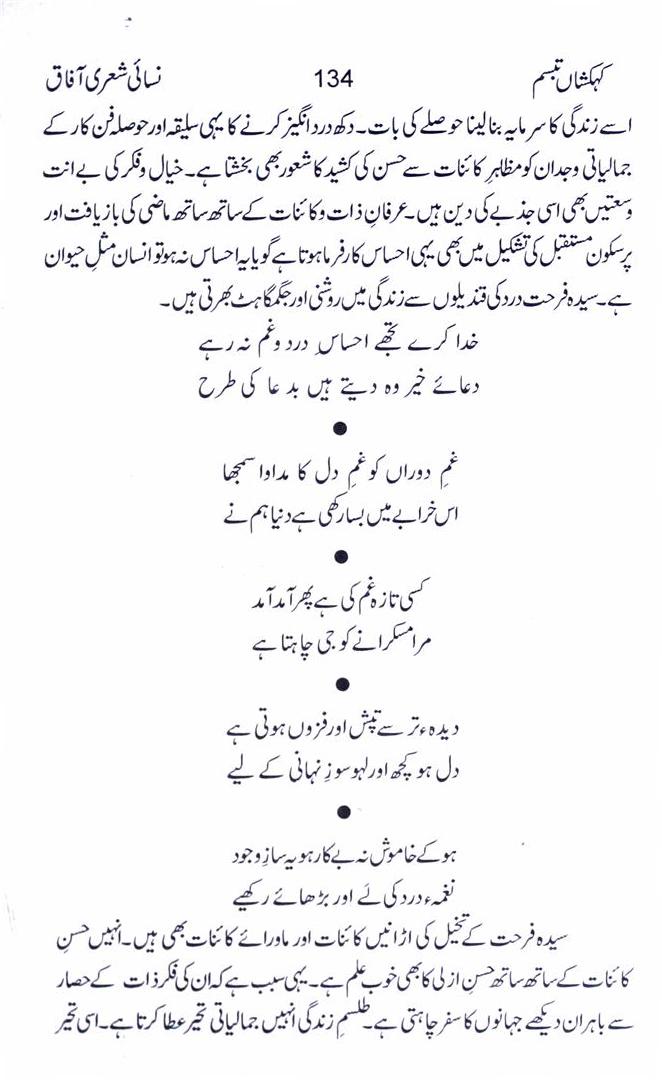 کہکشاں تبسم 134 نسائی شعری آفاق
اسے زندگی کا سرمایہ بنا لینا حوصلے کی بات۔ دکھ درد انگیز کرنے کا یہی سلیقہ اور حوصلہ فن کار کے
جمالیاتی وجدان کو مظاہرِ کائنات سے حسن کی کشید کا شعور بھی بخشتا ہے۔ خیال و فکر کی بے انت
وسعتیں بھی اسی جذبے کی دین ہیں۔ عرفانِ ذات و کائنات کے ساتھ ساتھ ماضی کی بازیافت اور
پرسکون مستقبل کی تشکیل میں بھی یہی احساس کارفرما ہوتا ہے گویا یہ احساس نہ ہو تو انسان مثلِ حیوان
ہے۔ سیدہ فرحت درد کی قندیلوں سے زندگی میں روشنی اور جگمگاہٹ بھرتی ہیں۔
خدا کرے تجھے احساسِ درد و غم نہ رہے
دعائے خیر وہ دیتے ہیں بد عا کی طرح
●
غمِ دوراں کو غمِ دل کا مداوا سمجھا
اس خرابے میں بسا رکھی ہے دنیا ہم نے
●
کسی تازہ غم کی ہے پھر آمد آمد
مرا مسکرانے کو جی چاہتا ہے
●
دیدہء تر سے تپش اور فزوں ہوتی ہے
دل ہو کچھ اور لہو سوزِ نہانی کے لیے
●
ہو کے خاموش نہ بے کار ہو یہ سازِ وجود
نغمہء درد کی لَے اور بڑھائے رکھیے
سیدہ فرحت کے تخیل کی اڑانیں کائنات اور ماورائے کائنات بھی ہیں۔ انہیں حسنِ
کائنات کے ساتھ ساتھ حسنِ ازلی کا بھی خوب علم ہے۔ یہی سبب ہے کہ ان کی فکر ذات کے حصار
سے باہر ان دیکھے جہانوں کا سفر چاہتی ہے۔ طلسمِ زندگی انہیں جمالیاتی تحیر عطا کرتا ہے۔ اسی تحیر